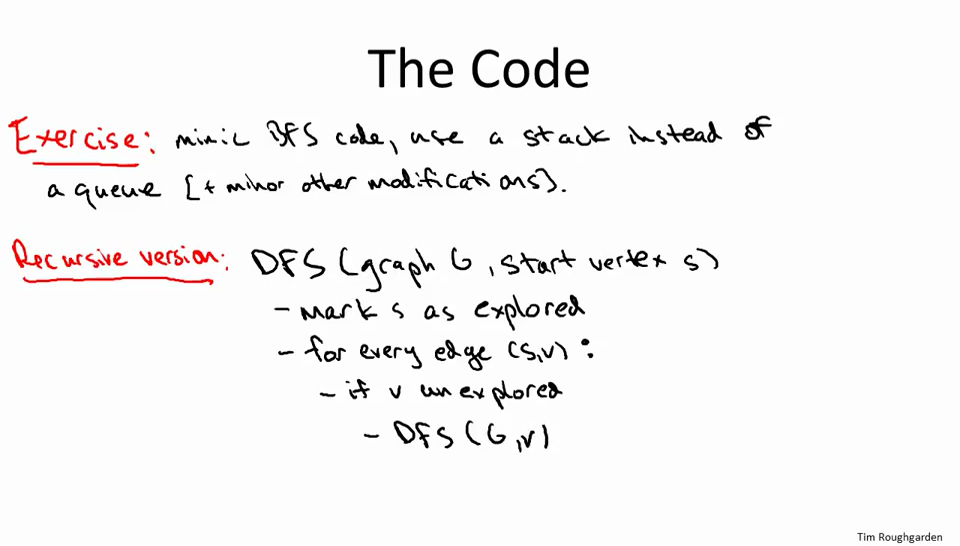 The Code
Exercise: mimic BFS code, use a stack instead of
a queue [+ minor other modifications].
Recursive version: DFS (graph G, start vertex s)
- mark s as explored
- for every edge (s,v) :
- if v unexplored
- DFS (G,v)
Tim Roughgarden